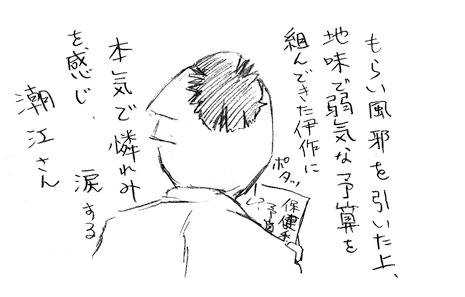 もらい風邪を引いた上、
地味で弱気な予算を
組んできた伊作に
ポタッ
保健委
予算
本気で憐れみ
を感じ、涙する
潮江さん